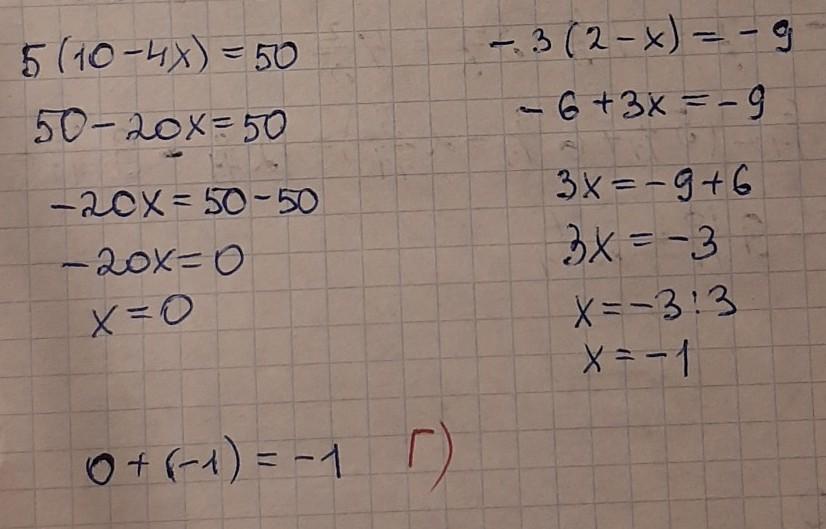 5(10-4x)=50
50-20x=50
-20x=50-50
-20x=0
x=0
-3(2-x)=-9
-6+3x=-9
3x=-9+6
3x=-3
x=-3:3
x=-1
0+(-1)=-1 Г)